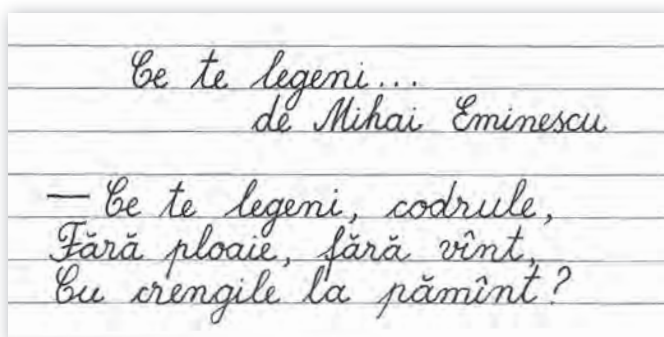 Ce te legeni...
de Mihai Eminescu
— Ce te legeni, codrule,
Fără ploaie, fără vînt,
Cu crengile la pămînt?